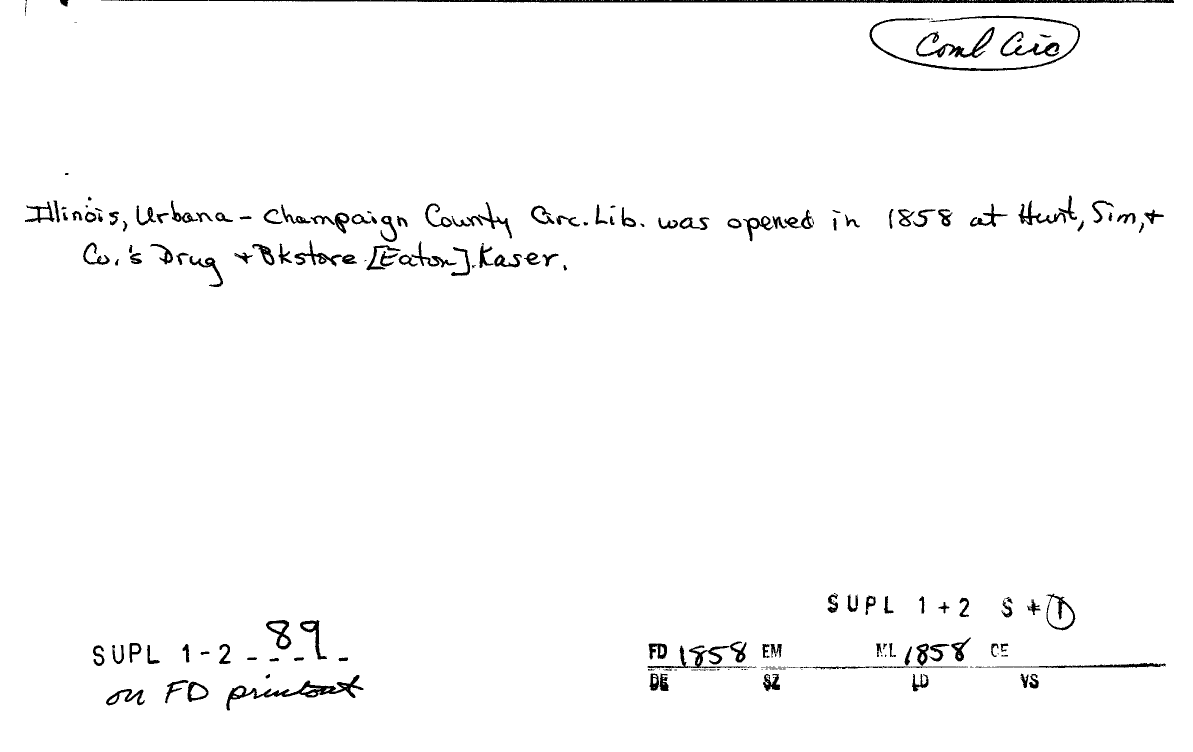 Coml Circ
Illinois, Urbana - Champaign County Circ. Lib. was opened in 1858 at Hunt, Sim, +
Co.'s Drug + Bkstore [Eaton]. Kaser.
SUPL 1 + 2 S + 1
SUPL 1 - 2 89
on FD printout
FD 1858 EM ML 1858 CE
DE SZ LD VS